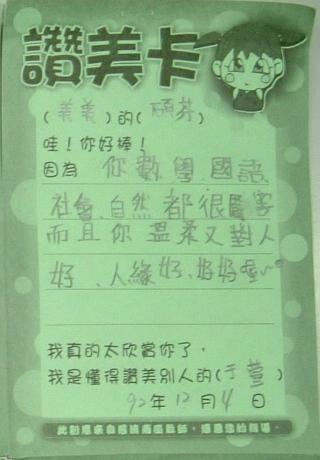 讚美卡
(美美)的(碩芬)
哇！你好棒！
因為 你數學、國語、
社會、自然 都很厲害
而且你 溫柔又對人
好、人緣好、好好喔~
我真的太欣賞你了，
我是懂得讚美別人的(于萱)
92年12月4日